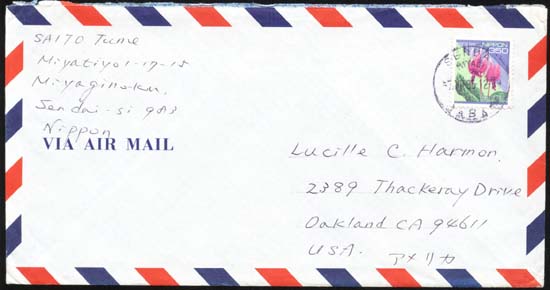 SAITO Tune
Miyatiyo1-17-15
Miyagino-ku,
Sendai-si 983
Nippon
VIA AIR MAIL
NIPPON
350
SENDAI
Lucille C. Harmon.
2389 Thackeray Drive
Oakland CA 94611
U.S.A. アメリカ